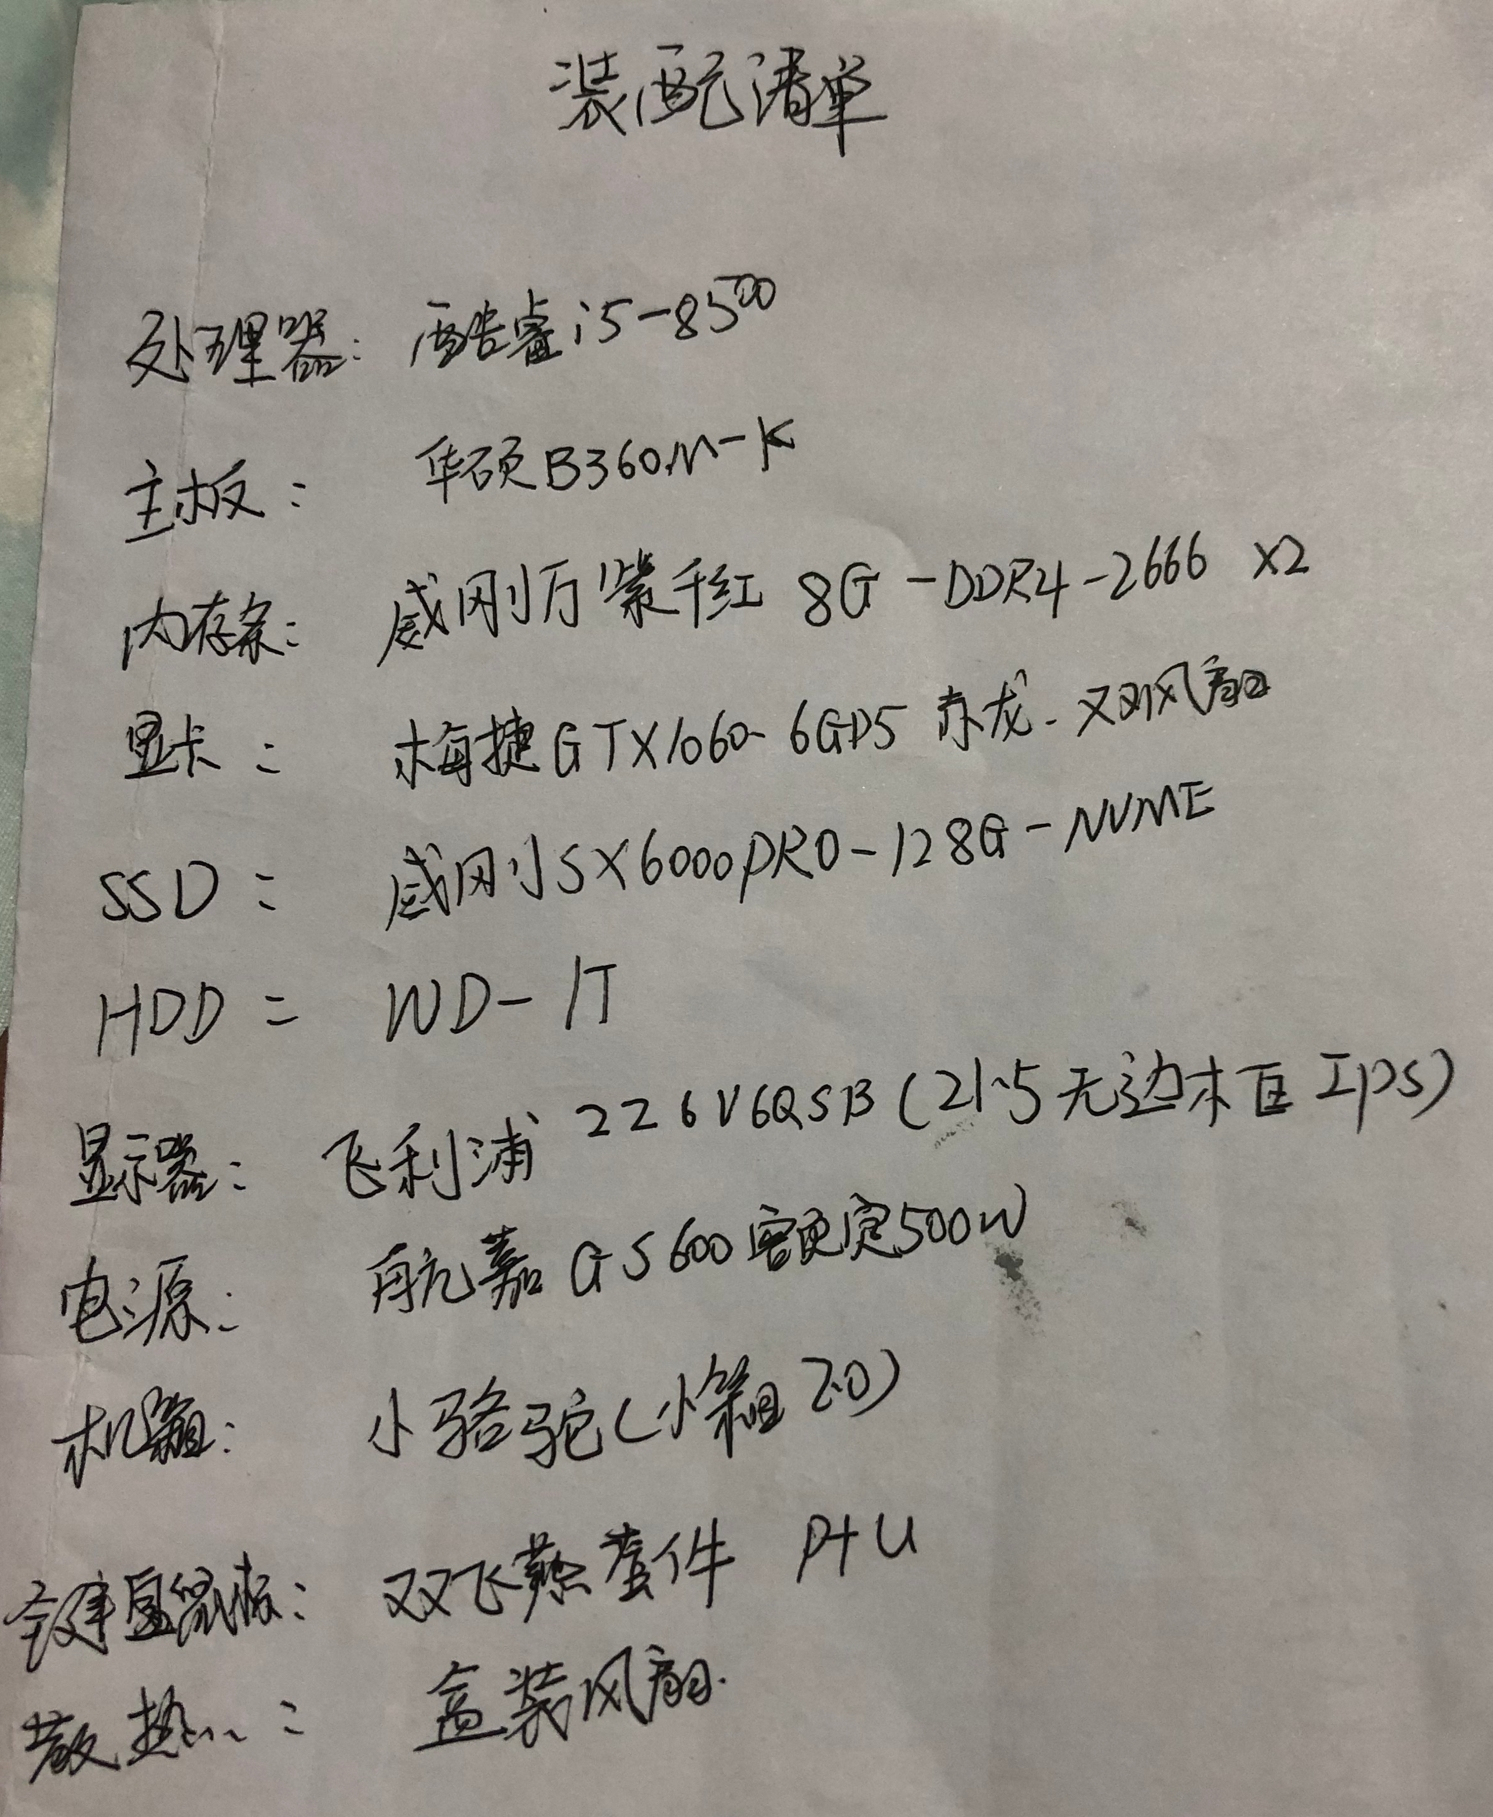 装配清单
处理器: 酷睿i5-8500
主板: 华硕B360M-K
内存条: 威刚万紫千红 8G-DDR4-2666 x2
显卡: 梅捷GTX1060-6GD5 赤龙-双风扇
SSD: 威刚SX6000PRO-128G-NVME
HDD: WD-1T
显示器: 飞利浦 226V6QSB(21.5无边框IPS)
电源: 航嘉GS600额定500W
机箱: 小骆驼(小箱2.0)
键盘鼠标: 双飞燕套件 P+U
散热: 盒装风扇.